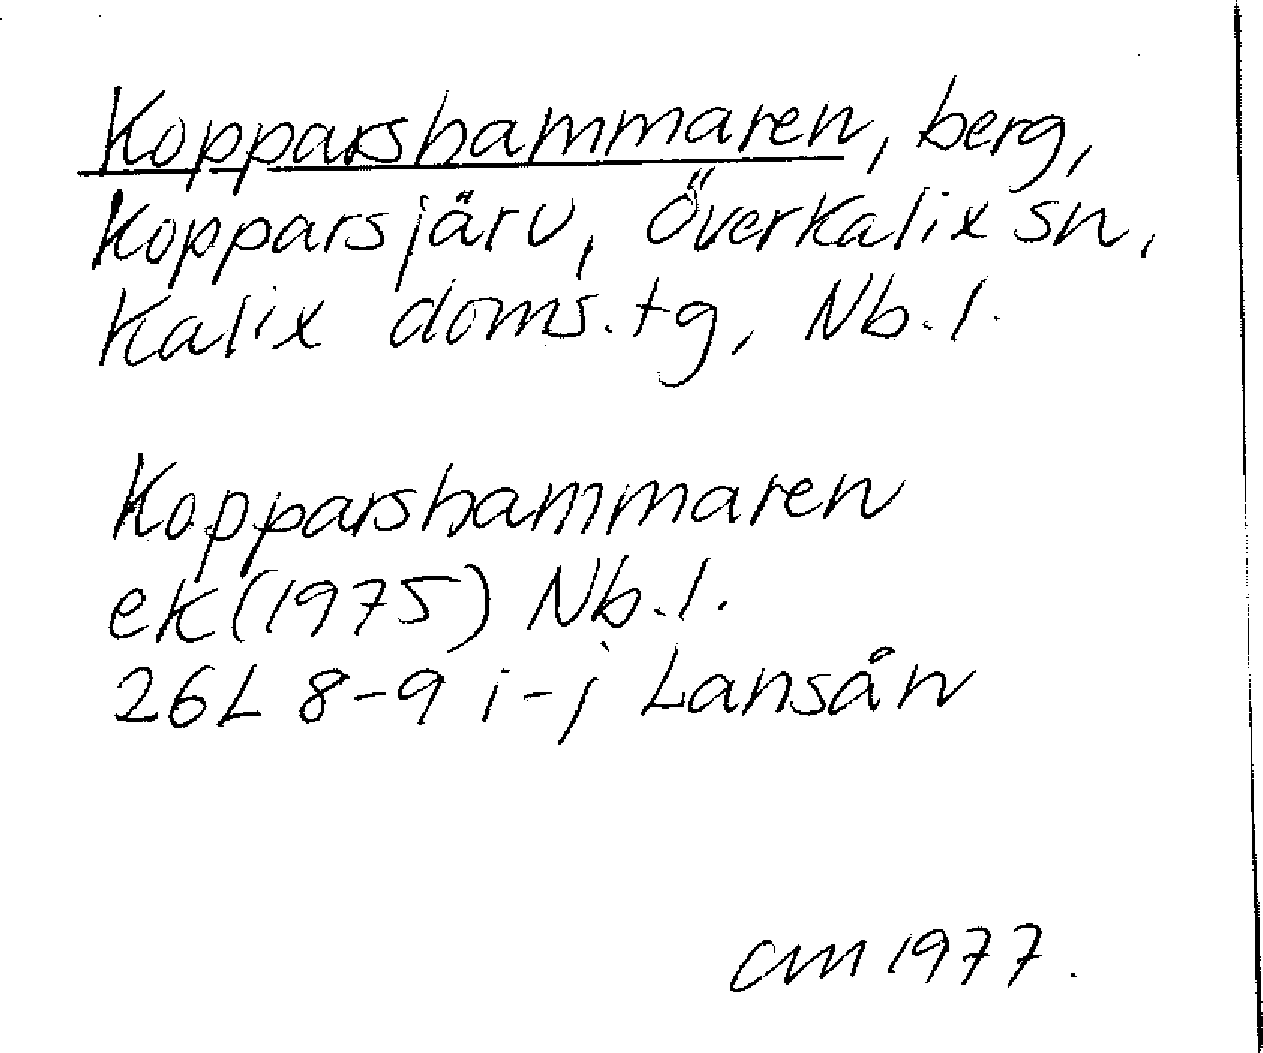 Kopparshammaren, berg,
Kopparsjärv, Överkalix sn,
Kalix doms.tg, Nb.l.
Kopparshammaren
ek (1975) Nb.l.
26L 8-9 i-j Lansån
CM 1977.